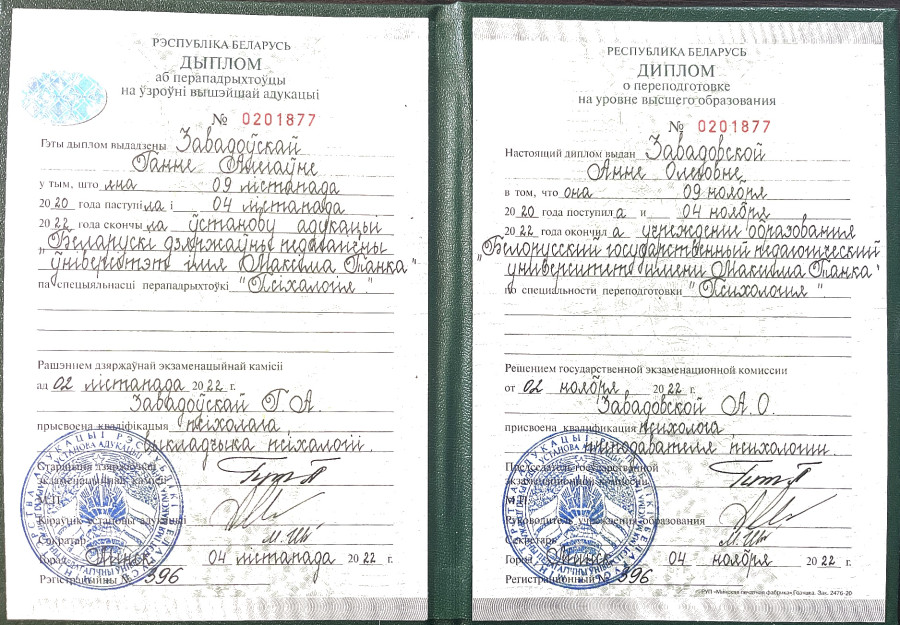 РЭСПУБЛІКА БЕЛАРУСЬ
ДЫПЛОМ
аб перападрыхтоўцы
на ўзроўні вышэйшай адукацыі
№ 0201877
Гэты дыплом выдадзены Завадоўскай
Ганне Алегаўне
у тым, што яна 09 лістапада
2020 года паступіла і 04 лістапада
2022 года скончыла ўстанову адукацыі
"Беларускі дзяржаўны педагагічны
ўніверсітэт імя Максіма Танка"
па спецыяльнасці перападрыхтоўкі "Псіхалогія"
Рашэннем дзяржаўнай экзаменацыйнай камісіі
ад 02 лістапада 2022 г.
Завадоўскай Г.А.
прысвоена кваліфікацыя псіхолага
выкладчыка псіхалогіі.
Старшыня дзяржаўнай
экзаменацыйнай камісіі
М.П.
Кіраўнік установы адукацыі
Сакратар
Горад Мінск 04 лістапада 2022 г.
Рэгістрацыйны № 396
РЕСПУБЛИКА БЕЛАРУСЬ
ДИПЛОМ
о переподготовке
на уровне высшего образования
№ 0201877
Настоящий диплом выдан Завадовской
Анне Олеговне
в том, что она 09 ноября
2020 года поступила и 04 ноября
2022 года окончила учреждении образования
"Белорусский государственный педагогический
университет имени Максима Танка"
по специальности переподготовки "Психология"
Решением государственной экзаменационной комиссии
от 02 ноября 2022 г.
Завадовской А.О.
присвоена квалификация психолога
преподавателя психологии
Председатель государственной
экзаменационной комиссии
М.П.
Руководитель учреждения образования
Секретарь
Город Минск 04 ноября 2022 г.
Регистрационный № 396
РУП «Минская печатная фабрика» Гознака. Зак. 2476-20